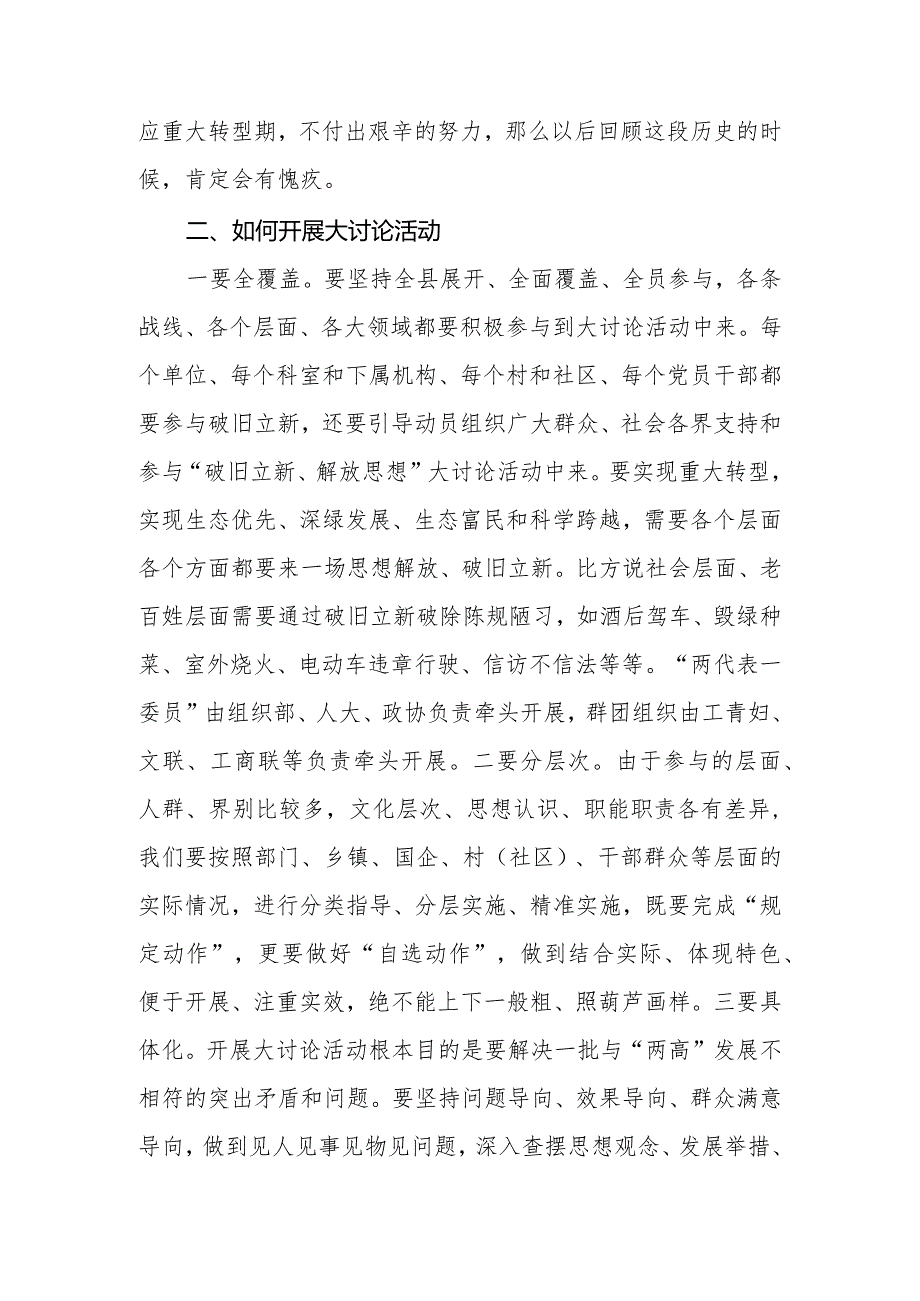 应重大转型期，不付出艰辛的努力，那么以后回顾这段历史的时
候，肯定会有愧疚。
二、如何开展大讨论活动
一要全覆盖。要坚持全县展开、全面覆盖、全员参与，各条
战线、各个层面、各大领域都要积极参与到大讨论活动中来。每
个单位、每个科室和下属机构、每个村和社区、每个党员干部都
要参与破旧立新，还要引导动员组织广大群众、社会各界支持和
参与“破旧立新、解放思想”大讨论活动中来。要实现重大转型，
实现生态优先、深绿发展、生态富民和科学跨越，需要各个层面
各个方面都要来一场思想解放、破旧立新。比方说社会层面、老
百姓层面需要通过破旧立新破除陈规陋习，如酒后驾车、毁绿种
菜、室外烧火、电动车违章行驶、信访不信法等等。“两代表一
委员”由组织部、人大、政协负责牵头开展，群团组织由工青妇、
文联、工商联等负责牵头开展。二要分层次。由于参与的层面、
人群、界别比较多，文化层次、思想认识、职能职责各有差异，
我们要按照部门、乡镇、国企、村（社区）、干部群众等层面的
实际情况，进行分类指导、分层实施、精准实施，既要完成“规
定动作”，更要做好“自选动作”，做到结合实际、体现特色、
便于开展、注重实效，绝不能上下一般粗、照葫芦画样。三要具
体化。开展大讨论活动根本目的是要解决一批与“两高”发展不
相符的突出矛盾和问题。要坚持问题导向、效果导向、群众满意
导向，做到见人见事见物见问题，深入查摆思想观念、发展举措、